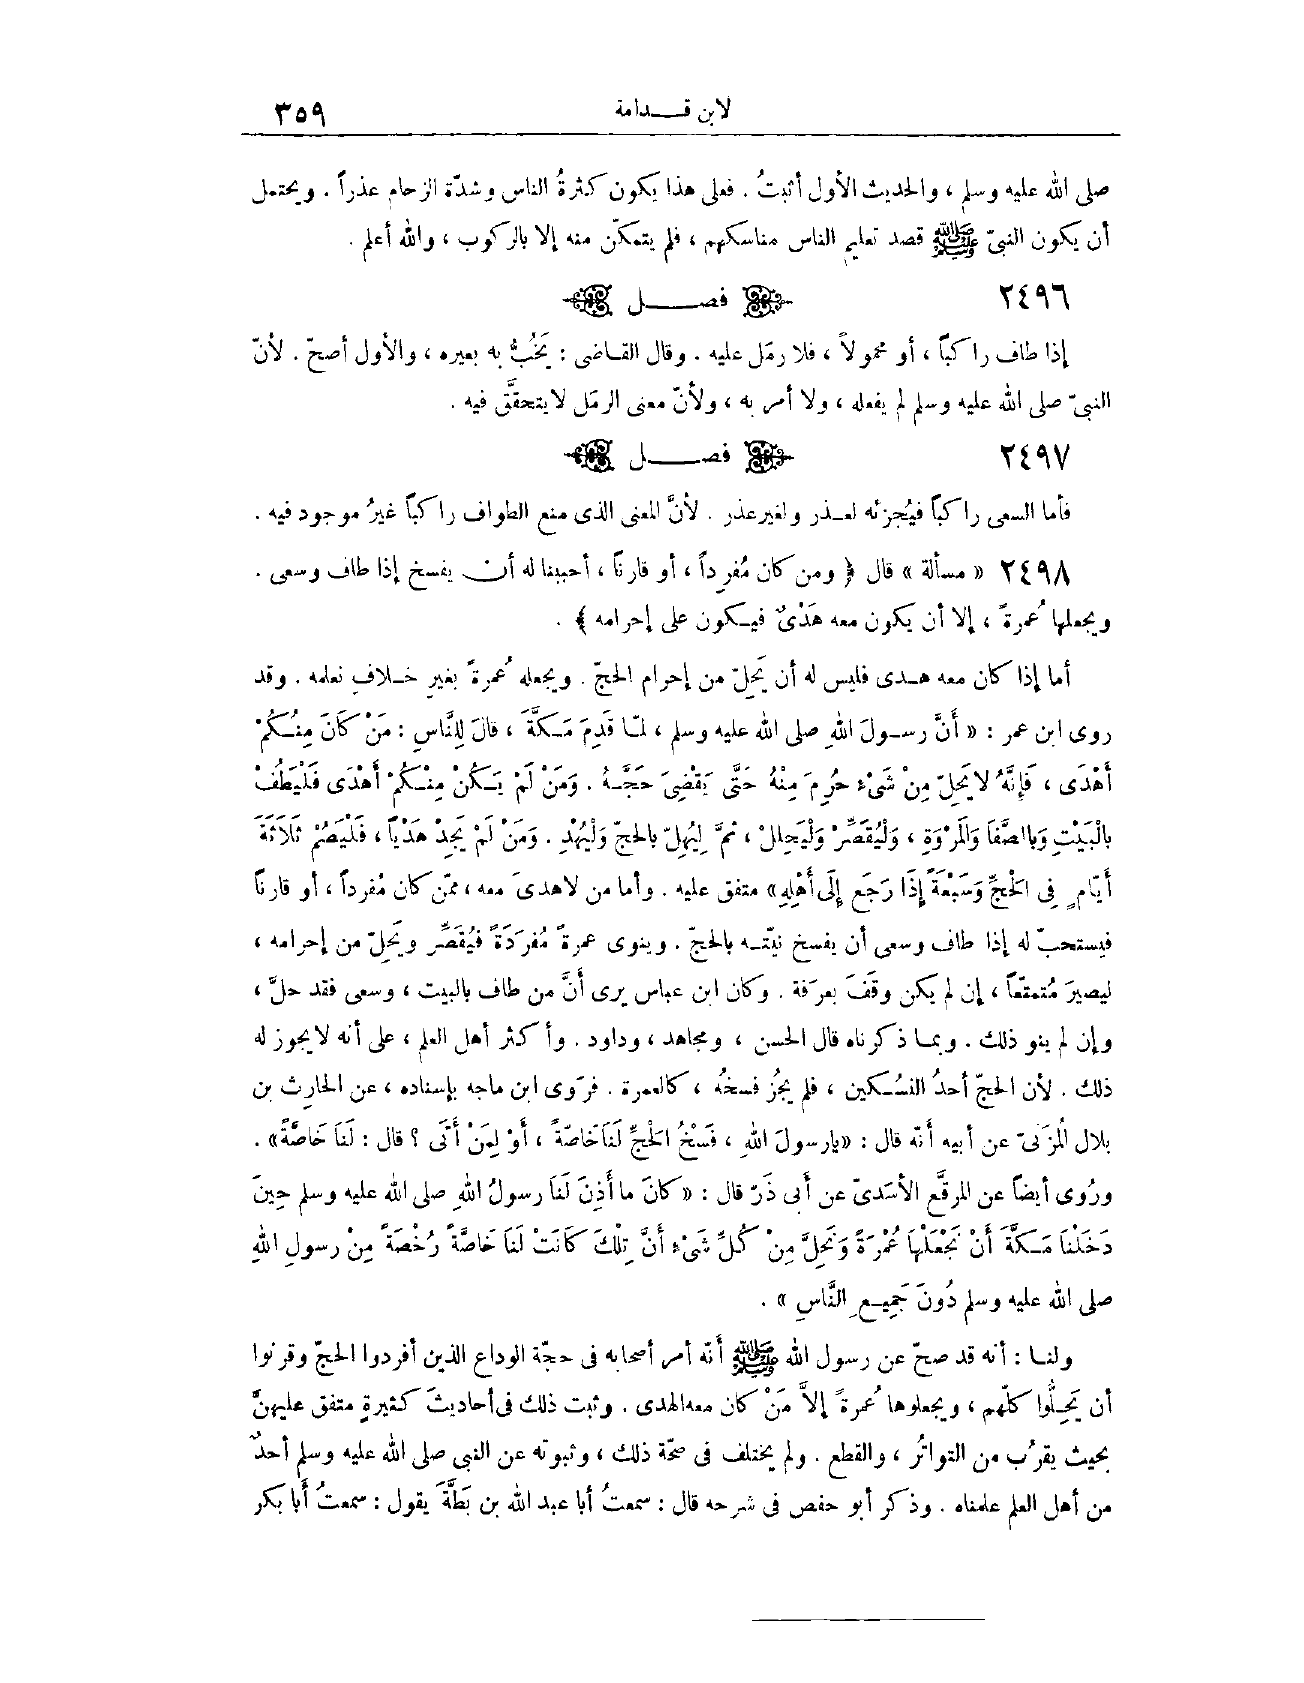 لابن قدامة ٣٥٩
صلى الله عليه وسلم ، والحديث الأول أثبتُ . فعلى هذا يكون كثرةُ الناس وشدّة الزحام عذراً . ويحتمل
أن يكون النبىّ ﷺ قصد تعليم الناس مناسكهم ، فلم يتمكّن منه إلا بالركوب ، والله أعلم .
٢٤٩٦ فصل
إذا طاف راكباً ، أو محمولاً ، فلا رمَل عليه . وقال القاضى : يَخُبُّ به بعيره ، والأول أصحّ . لأنّ
النبىّ صلى الله عليه وسلم لم يفعله ، ولا أمر به ، ولأنّ معنى الرمَل لا يتحقَّق فيه .
٢٤٩٧ فصل
فأما السعى راكباً فيُجزئه لعذر ولغير عذر . لأنَّ المعنى الذى منع الطواف راكباً غيرُ موجود فيه .
٢٤٩٨ « مسألة » قال ﴿ ومن كان مُفرِداً ، أو قارناً ، أحببنا له أن يفسخ إذا طاف وسعى .
ويجعلها عُمرةً ، إلا أن يكون معه هَدْىٌ فيكون على إحرامه ﴾ .
أما إذا كان معه هدى فليس له أن يَحِلّ من إحرام الحجّ . ويجعله عُمرةً بغيرِ خلافٍ نعلمه . وقد
روى ابن عمر : « أَنَّ رسولَ اللهِ صلى الله عليه وسلم ، لمّا قَدِمَ مَكَّةَ ، قالَ لِلنَّاسِ : مَنْ كَانَ مِنْكُمْ
أَهْدَى ، فَإِنَّهُ لا يَحِلّ مِنْ شَىْءٍ حُرِمَ مِنْهُ حَتَّى يَقْضِىَ حَجَّهُ . وَمَنْ لَمْ يَكُنْ مِنْكُمْ أَهْدَى فَلْيَطُفْ
بالْبَيْتِ وَبالصَّفَا وَالمَرْوَةِ ، وَلْيُقَصِّرْ وَلْيَحلِلْ ، ثمَّ لِيُهِلّ بالحَجّ وَلْيُهْدِ . وَمَنْ لَمْ يَجِدْ هَدْياً ، فَلْيَصُمْ ثَلَاثَةَ
أَيّامٍ فِى الحَجِّ وَسَبْعَةً إِذَا رَجَعَ إِلَى أَهْلِهِ» متفق عليه . وأما من لا هدىَ معه ، ممّن كان مُفرداً ، أو قارناً
فيستحبّ له إذا طاف وسعى أن يفسخ نيّته بالحجّ . وينوى عمرةً مُفرَدَةً فيُقَصِّر ويَحِلّ من إحرامه ،
ليصيرَ مُتمتّعاً ، إن لم يكن وقَفَ بعرفة . وكان ابن عباس يرى أنَّ من طاف بالبيت ، وسعى فقد حلَّ ،
وإن لم ينو ذلك . وبما ذكرناه قال الحسن ، ومجاهد ، وداود . وأكثر أهل العلم ، على أنه لا يجوز له
ذلك . لأن الحجّ أحدُ النسُكين ، فلم يجُز فسخهُ ، كالعمرة . فرَوى ابن ماجه بإسناده ، عن الحارِث بن
بلال المُزَنىّ عن أبيه أنّه قال : «يارسولَ اللهِ ، فَسْخُ الحَجِّ لَنَا خاصّةً ، أَوْ لِمَنْ أَتَى ؟ قال : لَنَا خَاصَّةً» .
ورُوى أيضاً عن المرقَّع الأسَدىّ عن أبى ذَرّ قال : « كانَ ما أذِنَ لَنَا رسولُ اللهِ صلى الله عليه وسلم حِينَ
دَخَلْنَا مَكَّةَ أَنْ نَجْعَلَهَا عُمْرَةً وَنَحِلَّ مِنْ كُلِّ شَىْءٍ أَنَّ تِلْكَ كَانَتْ لَنَا خَاصَّةً رُخْصَةً مِنْ رسولِ اللهِ
صلى الله عليه وسلم دُونَ جَمِيعِ النَّاسِ » .
ولنا : أنه قد صحّ عن رسول الله ﷺ أَنّه أمر أصحابه فى حجّة الوداع الذين أفردوا الحجّ وقرنوا
أن يَحِلُّوا كلّهم ، ويجعلوها عُمرةً إلاَّ مَنْ كان معه الهدى . وثبت ذلك فى أحاديثَ كثيرةٍ متفق عليهنَّ
بحيث يقرُب من التواتُر ، والقطع . ولم يختلف فى صحّة ذلك ، وثبوته عن النبى صلى الله عليه وسلم أحدٌ
من أهل العلم علمناه . وذكر أبو حفص فى شرحه قال : سمعتُ أبا عبد الله بن بَطَّةَ يقول : سمعتُ أَبا بكر